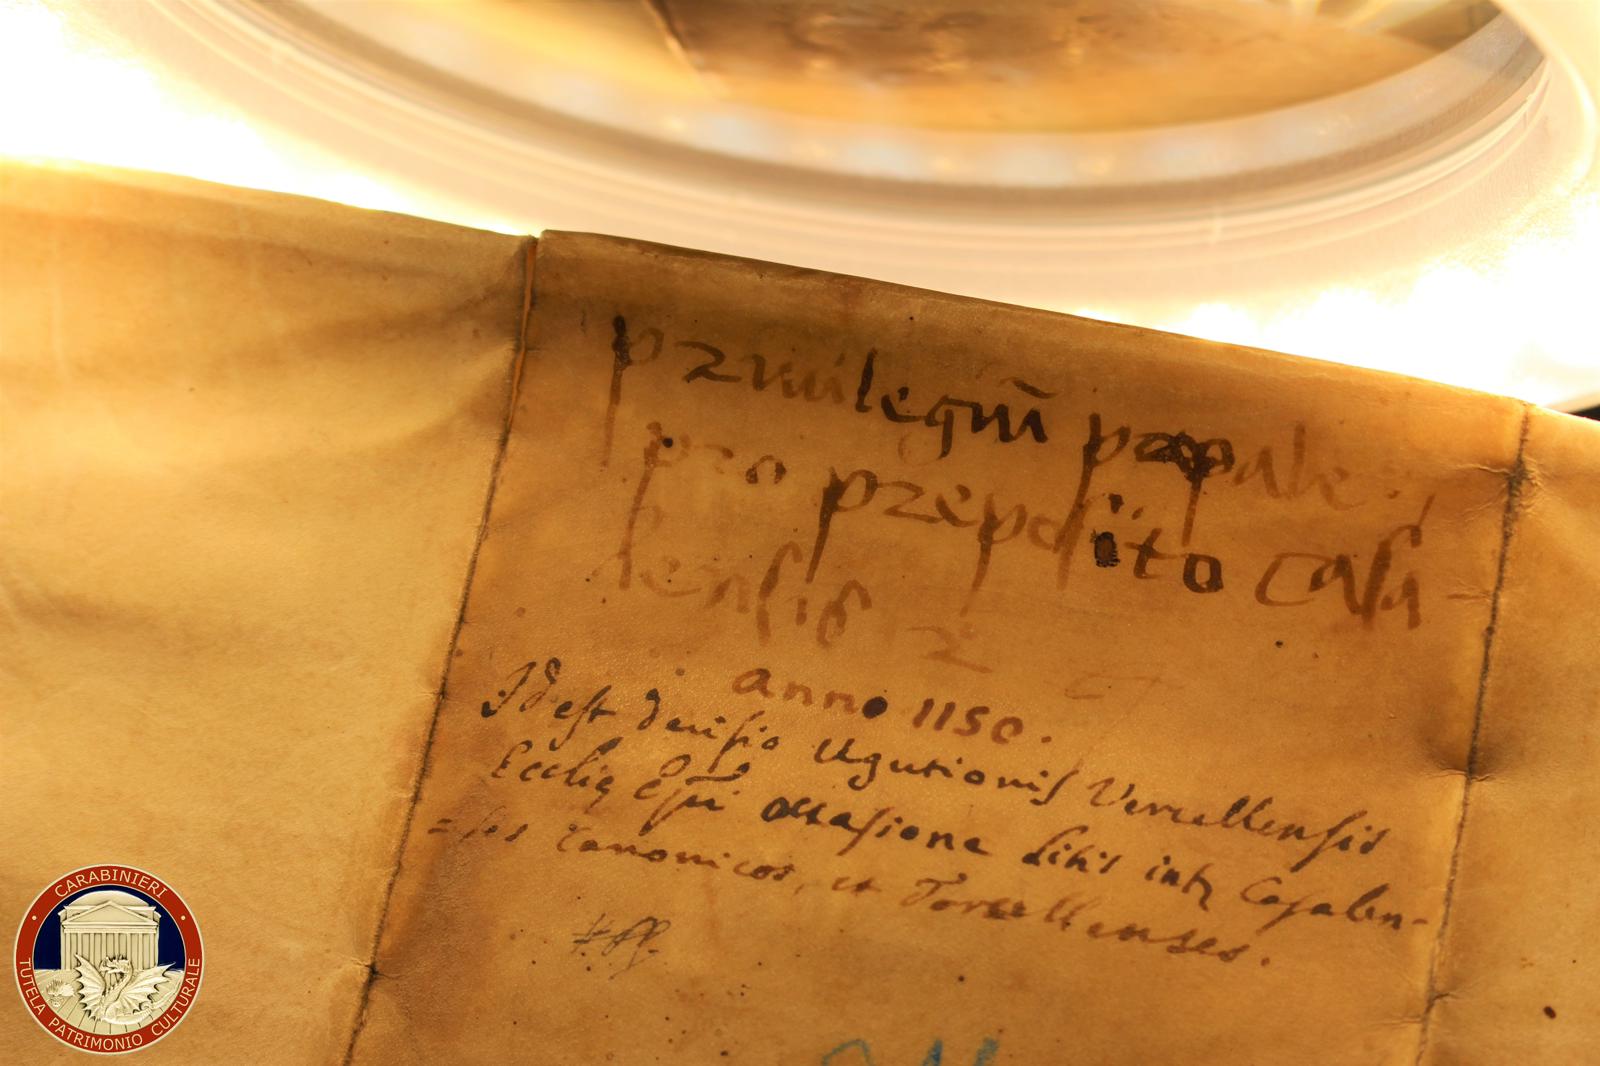 priuilegiū papale
pro preposito Casa-
lensis 2
anno 1150.
Id est decisio Ugutionis Vercellensis
Ecclię Epi occasione litis intr Casalen-
=ses Canonicos, et Torcellenses.
CARABINIERI
TUTELA PATRIMONIO CULTURALE